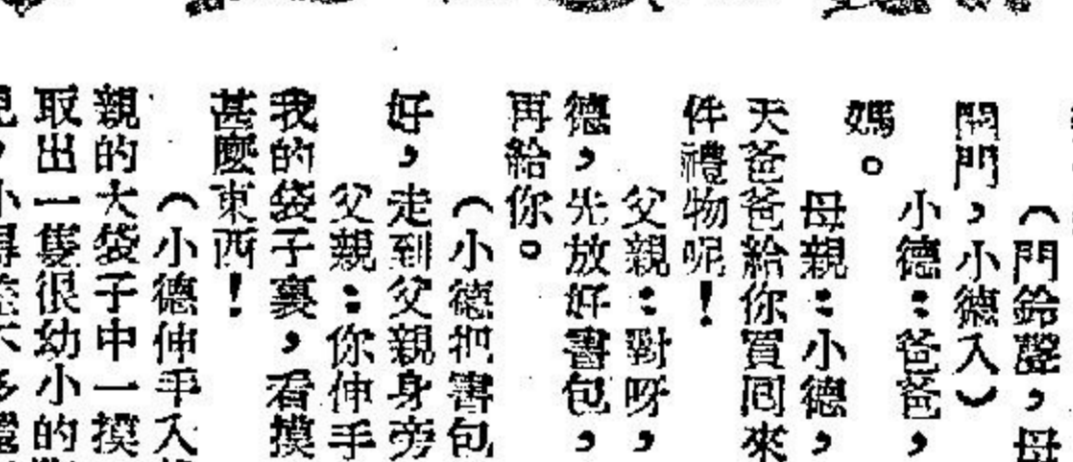 （門鈴聲，母
開門，小德入）
小德：爸爸，
媽。
母親：小德，
天爸爸給你買回來
件禮物呢！
父親：對呀，
德，先放好書包，
再給你。
（小德把書包
好，走到父親身旁
父親：你伸手
我的袋子裏，看摸
甚麼東西！
（小德伸手入
親的大袋子中一摸
取出一隻很幼小的